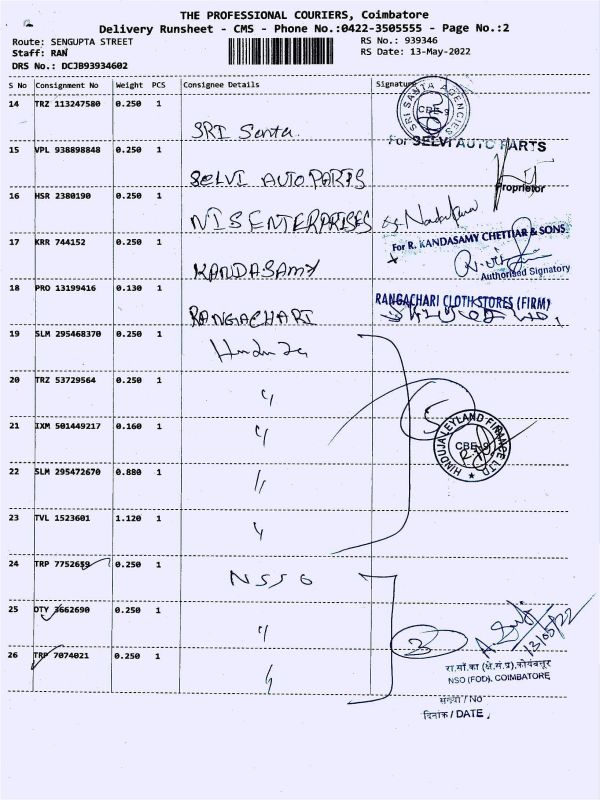 THE PROFESSIONAL COURIERS, Coimbatore
Delivery Runsheet - CMS - Phone No.:0422-3505555 - Page No.:2
Route: SENGUPTA STREET
RS No.: 939346
Staff: RAN
RS Date: 13-May-2022
DRS No.: DCJB93934602
S No Consignment No Weight PCS Consignee Details Signature
14 TRZ 113247580 0.250 1
SRI Santa
SRI SANTA AGENCIES
CBE-9
15 VPL 938898848 0.250 1
SELVI AUTO PARTS
For SELVI AUTO PARTS
Proprietor
16 HSR 2380190 0.250 1
NIS ENTERPRISES
17 KRR 744152 0.250 1
KANDASAMY
For R. KANDASAMY CHETTIAR & SONS
Authorised Signatory
18 PRO 13199416 0.130 1
RANGACHARI
RANGACHARI CLOTH STORES (FIRM)
19 SLM 295468370 0.250 1
20 TRZ 53729564 0.250 1
〃
21 IXM 501449217 0.160 1
〃
5
HINDUJA LEYLAND FINANCE LTD
CBE-9
22 SLM 295472670 0.880 1
〃
23 TVL 1523601 1.120 1
〃
24 TRP 7752659 0.250 1
NSSO
25 OTY 3662690 0.250 1
〃
3
13/05/22
26 TRP 7074021 0.250 1
〃
रा.सां.का (क्षे.सं.प्र).कोयंबत्तूर
NSO (FOD), COIMBATORE
संख्या / NO
दिनांक / DATE